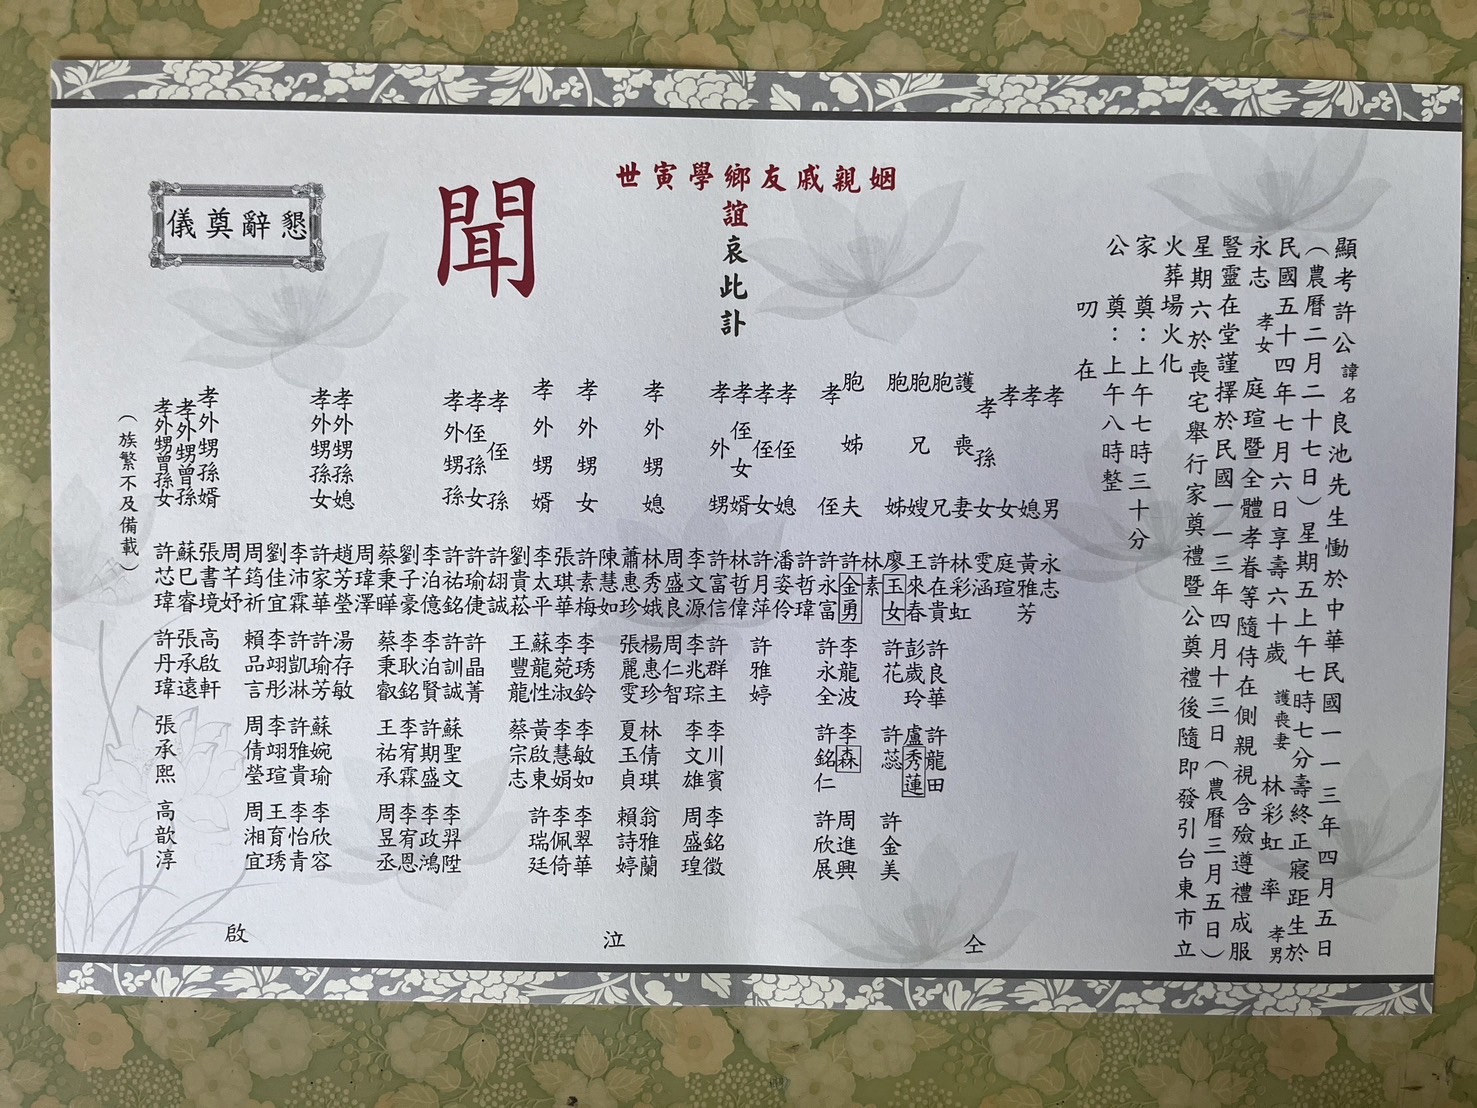 顯考許公諱名良池先生慟於中華民國一一三年四月五日
（農曆二月二十七日）星期五上午七時七分壽終正寢距生於
民國五十四年七月六日享壽六十歲 護喪妻 林彩虹 率 孝男
永志 孝女 庭瑄暨全體孝眷等隨侍在側親視含殮遵禮成服
豎靈在堂謹擇於民國一一三年四月十三日（農曆三月五日）
星期六於喪宅舉行家奠禮暨公奠禮後隨即發引台東市立
火葬場火化
家奠：上午七時三十分
公奠：上午八時整
叨在
姻親戚友鄉學寅世
誼哀此訃
聞
懇辭奠儀
孝男 永志
孝媳 黃雅芳
孝女 庭瑄
孝孫女 雯涵
護喪妻 林彩虹
胞兄 許在貴 許良華 許龍田
胞兄嫂 王來春 彭歲玲 盧秀蓮
胞姊 廖玉女 許花 許蕊 許金美
胞姊夫 林素 許金勇 李龍波 李森 周進興
孝侄 許永富 許永全 許銘仁 許欣展
許哲瑋
孝侄媳 潘姿伶
孝侄女 許月萍 許雅婷
孝侄女婿 林哲偉
孝外甥 許富信 許群主 李川賓 李銘徵
李文源 李兆琮 李文雄 周盛瑝
周盛良 周仁智
孝外甥媳 林秀娥 楊惠珍 林倩琪 翁雅蘭
蕭惠珍 張麗雯 夏玉貞 賴詩婷
陳慧如
孝外甥女 許素梅 李琇鈴 李敏如 李翠華
張琪華 李菀淑 李慧娟 李佩倚
孝外甥婿 李太平 蘇龍性 黃啟東 許瑞廷
劉貴菘 王豐龍 蔡宗志
孝侄孫 許翃誠 許晶菁
孝侄孫女 許瑜倢 許訓誠 蘇聖文 李羿陞
孝外甥孫 許祐銘 李泊賢 許期盛 李政鴻
李泊億 李耿銘 李宥霖 李宥恩
劉子豪 蔡秉叡 王祐承 周昱丞
蔡秉曄
周瑋澤
孝外甥孫媳 趙芳瑩 湯存敏
孝外甥孫女 許家華 許瑜芳 蘇婉瑜 李欣容
李沛霖 許凱淋 許雅貴 李怡青
劉佳宜 李翊彤 李翊瑄 王育琇
周筠祈 賴品言 周倩瑩 周湘宜
周芊妤
孝外甥孫婿 張書境 高啟軒
孝外甥曾孫 蘇巳睿 張承遠
孝外甥曾孫女 許芯瑋 許丹瑋 張承熙 高歆淳
（族繁不及備載）
仝 泣 啟